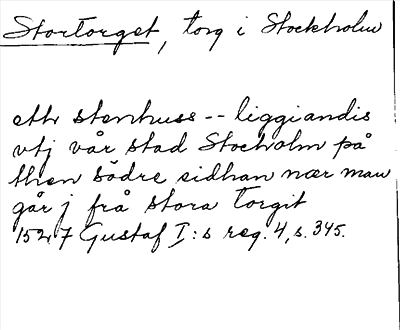 Stortorget, torg i Stockholm
ett stenhuss -- liggiandis
vtj vår stad Stocholm på
then södre sidhan nær man
går j frå stora torgit
1527 Gustaf I:s reg. 4, s. 345.